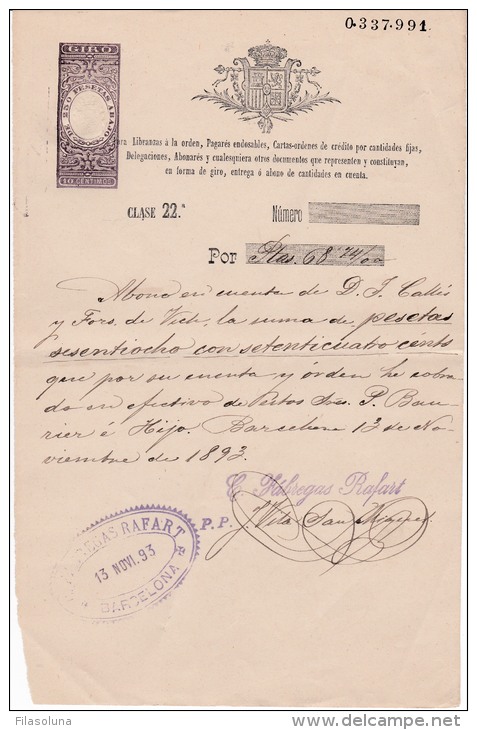 0.337.991
GIRO
DE 250 PESETAS ABAJO
10 CENTIMOS
Para Libranzas á la orden, Pagarés endosables, Cartas-ordenes de crédito por cantidades fijas,
Delegaciones, Abonarés y cualesquiera otros documentos que representen y constituyan,
en forma de giro, entrega ó abono de cantidades en cuenta.
CLASE 22.ª Número
Por Ptas. 68'74/00
Abono en cuenta de D. J. Callis
y Fors. de Vich, la suma de pesetas
sesentiocho con setenticuatro cénts
que por su cuenta y orden he cobra-
do en efectivo de Sres. P. Bau-
rier é Hijo. Barcelona 13 de No-
viembre de 1893.
C. Fábregas Rafart
P.P.
FABREGAS RAFART
13 NOVI. 93
BARCELONA
Filasoluna
delcampe.net